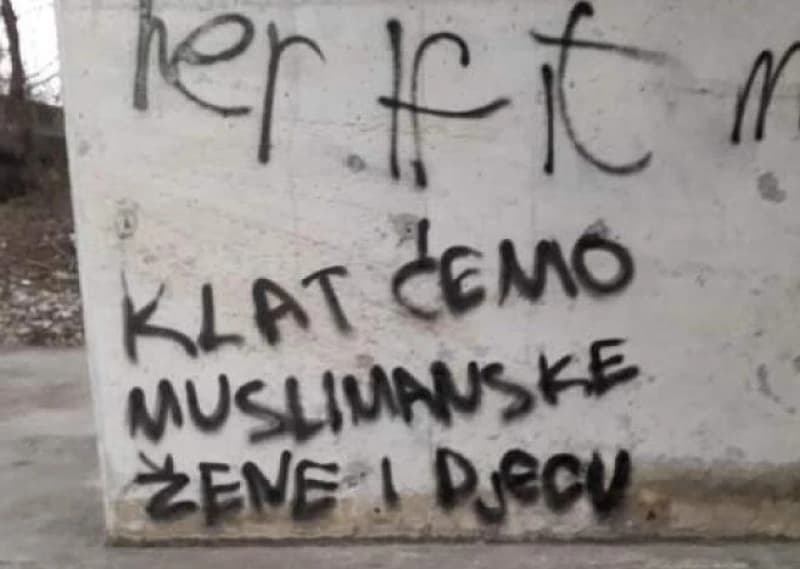 her If it
KLAT ĆEMO
MUSLIMANSKE
ŽENE I DJECU